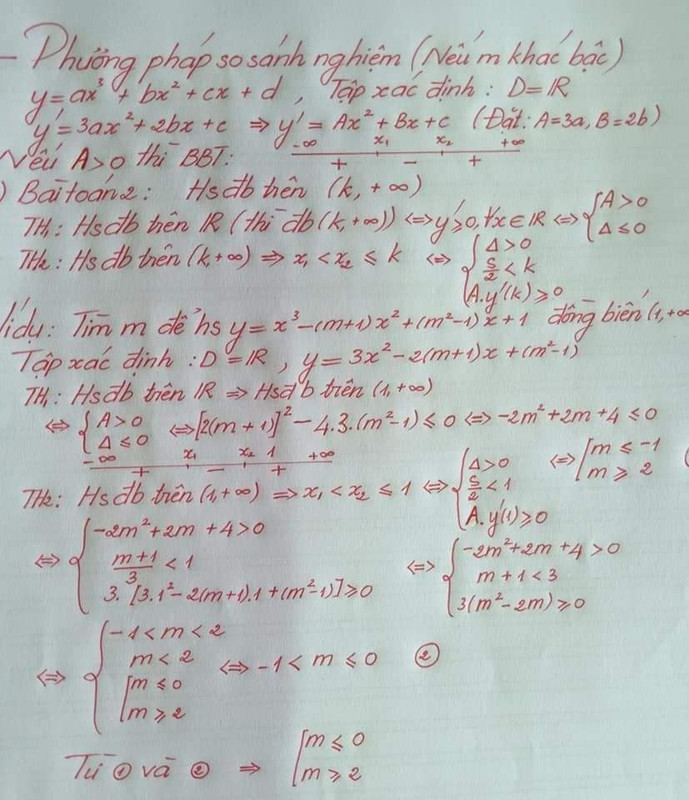 - Phương pháp so sánh nghiệm (Nếu m khác bậc)
y=ax³+bx²+cx+d, Tập xác định: D=ℝ
y'=3ax²+2bx+c ⇒ y'=Ax²+Bx+c (Đặt: A=3a, B=2b)
Nếu A>0 thì BBT: -∞ x₁ x₂ +∞
+ - +
) Bài toán 2: Hs đb trên (k,+∞)
TH₁: Hs đb trên ℝ (thì đb (k,+∞)) ⇔ y'≥0, ∀x∈ℝ ⇔ { A>0
Δ≤0
TH₂: Hs đb trên (k,+∞) ⇒ x₁<x₂≤k ⇔ { Δ>0
S/2<k
A.y'(k)≥0
Ví dụ: Tìm m để hs y=x³-(m+1)x²+(m²-1)x+1 đồng biến (1,+∞
Tập xác định: D=ℝ, y=3x²-2(m+1)x+(m²-1)
TH₁: Hs đb trên ℝ ⇒ Hs đb trên (1,+∞)
⇔ { A>0
Δ≤0 ⇔ [2(m+1)]²-4.3.(m²-1)≤0 ⇔ -2m²+2m+4≤0
⇔ [ m≤-1
m≥2
-∞ x₁ x₂ 1 +∞
+ - +
TH₂: Hs đb trên (1,+∞) ⇒ x₁<x₂≤1 ⇔ { Δ>0
S/2<1
A.y'(1)≥0
⇔ { -2m²+2m+4>0
(m+1)/3<1
3.[3.1²-2(m+1).1+(m²-1)]≥0
⇔ { -2m²+2m+4>0
m+1<3
3(m²-2m)≥0
⇔ { -1<m<2
m<2
[ m≤0
m≥2
⇔ -1<m≤0 ②
Từ ① và ② ⇒ [ m≤0
m≥2